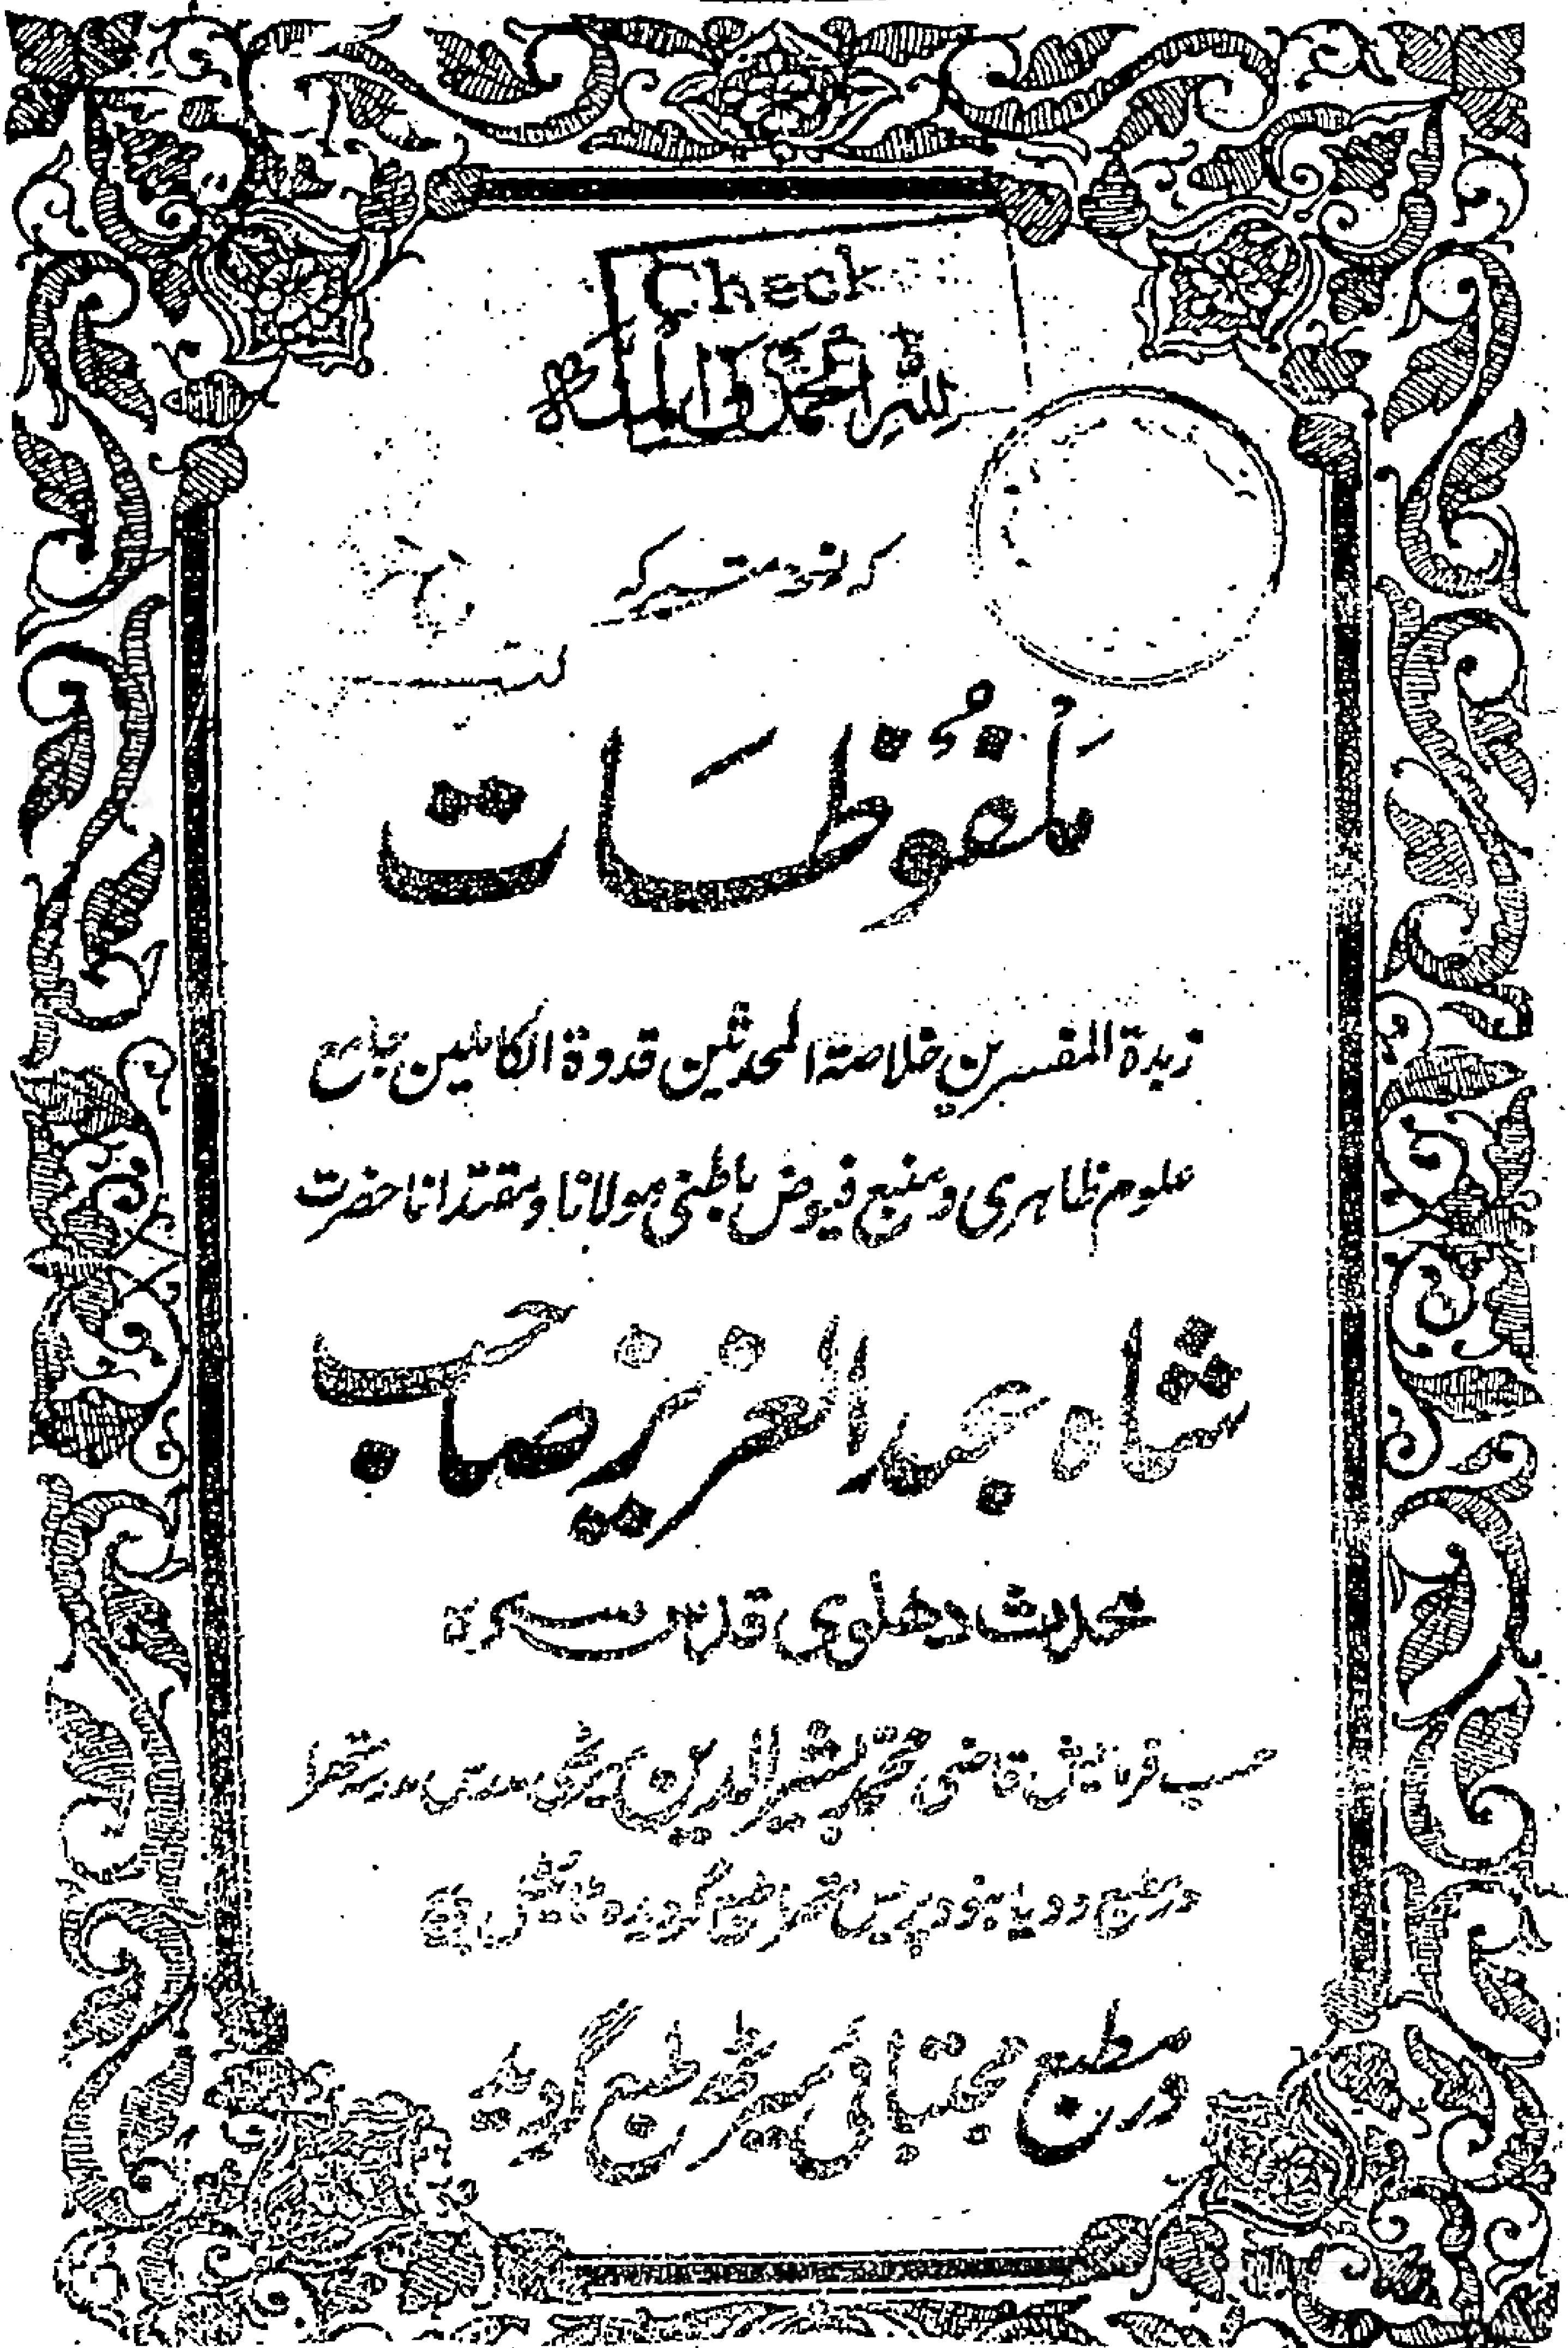 Check
لله الحمد والمنة
که نسخه متبرکه
مَلفُوظَات
زبدة المفسرین خلاصة المحدثین قدوة الکاملین جامع
علوم ظاهری و منبع فیوض باطنی مولانا و مقتدانا حضرت
شاه عبد العزیز صاحب
محدث دهلوی قدس سره
حسب فرمائش قاضی محمد بشیر الدین میرٹھی مدرس مدرسه
در مطبع
در مطبع مجتبائی میرٹھ طبع گردید